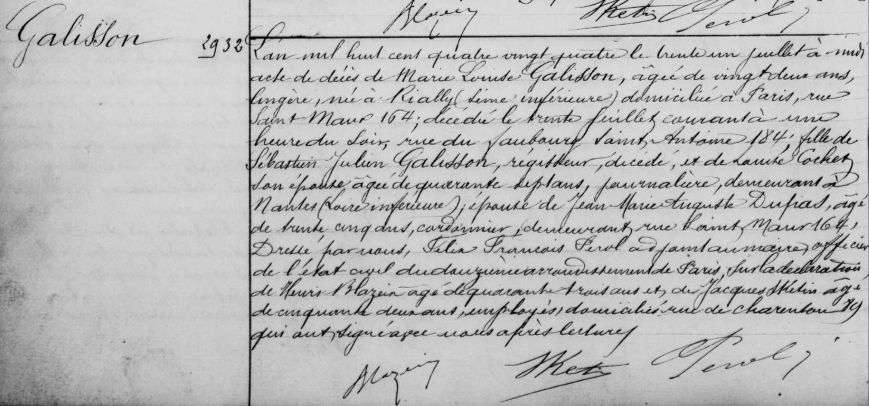 Galisson
2932
L'an mil huit cent quatre vingt quatre le trente un juillet à midi
acte de décès de Marie Louise Galisson, âgée de vingt deux ans,
lingère, née à Rially (Seine inférieure) domiciliée à Paris, rue
Saint Maur 164; décédée le trente juillet courant à une
heure du soir, rue du faubourg Saint Antoine 184; fille de
Sébastien Julien Galisson, registreur, décédé, et de Louise Cochet
son épouse, âgée de quarante sept ans, journalière, demeurant à
Nantes (Loire inférieure); épouse de Jean Marie Auguste Dupas, âgé
de trente cinq ans, cordonnier, demeurant rue Saint Maur 164.
Dressé par nous, Félix François Pérol adjoint au maire, officier
de l'état civil du douzième arrondissement de Paris, sur la déclaration
de Henri Blazein âgé de quarante trois ans et de Jacques Sketin âgé
de cinquante deux ans, employés, domiciliés rue de Charenton 79
qui ont signé avec nous après lecture
Blazein Sketin Perol